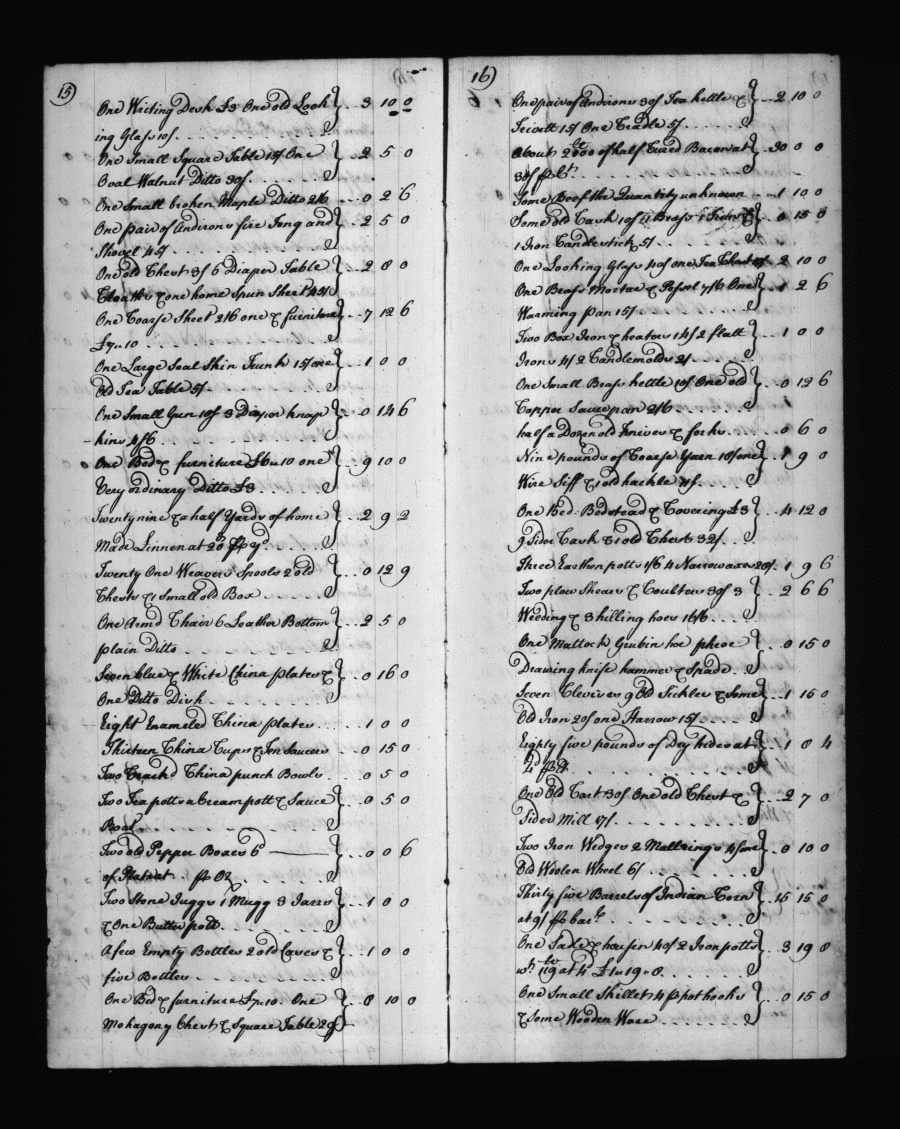 15)
One Writing Desk £3 One old Look } .. 3 10 0
ing Glass 10/. . . .
One Small Square Table 15/ One } .. 2 5 0
Oval Walnut Ditto 30/. . . . .
One Small broken Maple Ditto 2/6 .. 0 2 6
One pair of Andirons fire Tong and } .. 2 5 0
Shovel 45/. . . . .
One old Chest 3/ 6 Diaper Table } .. 2 8 0
Cloaths & one home Spun Sheet 45/
One Coarse Sheet 2/6 one & furniture } .. 7 12 6
£7..10 . . . .
One Large Seal Skin Trunk 15/ one } .. 1 0 0
Old Tea Table 5/. . . . .
One Small Gun 10/ 3 Diaper knap } .. 0 14 6
kins 4/6 . . . .
One Bed & furniture £6..10 one } .. 9 10 0
Very ordinary Ditto £3 . . . .
Twenty nine & a half Yards of home } .. 2 9 2
Made Linnen at 20d ⅌ yd . . . .
Twenty One Weavers Spools 2 old } .. 0 12 9
Chests & 1 Small old Box . . . .
One Armd Chair 6 Leather Bottom } .. 2 5 0
plain Ditto . . . .
Seven blue & White China plates & } .. 0 16 0
One Ditto Dish . . . .
Eight Enameled China plates . . . 1 0 0
Thirteen China Cups & Ten Saucers .. 0 15 0
Two Crackd China punch Bowls . . 0 5 0
Two Teapotts a Cream pott & Sauce } .. 0 5 0
Boat . . . .
Two old Pepper Boxes 6d } .. 0 0 6
of Plate at ⅌ Oz . . . .
Two Stone Juggs 1 Mugg 3 Jarrs } .. 1 0 0
& One Butter pott . . . .
A few Empty Bottles 2 old Cases & } .. 1 0 0
five Bottles . . . .
One Bed & furniture £7..10 One } .. 8 10 0
Mohagony Chest & Square Table 20/
16)
One pair of Andirons 30/ Tea kettle & } .. 2 10 0
Trivett 15/ One Cradle 5/ . . . .
About 2000 of half Cured Bacon at } .. 30 0 0
30/ ⅌ Ct . . . .
Some Beef the Quantity unknown . . 1 10 0
Some old Cask 10/ Brass 1 } .. 0 15 0
1 Iron Candlestick 5/ . . . .
One Looking Glass 40/ one Tea Chest 10/ 2 10 0
One Brass Mortar & Pessel 7/6 One } .. 1 2 6
Warming pan 15/ . . . .
Two Box Iron & heators 14/ 2 flatt } .. 1 0 0
Irons 4/ 2 Candlemolds 2/ . . . .
One Small Brass kettle 10/ One old } .. 0 12 6
Copper Saucepan 2/6 . . . .
half a Dozen old knives & forks . . 0 6 0
Nine pounds of Coarse Yarn 18/ one } .. 1 9 0
Wire Siff & 1 old hackle 11/. . . .
One Bed Bedstead & Covering £3 } .. 4 12 0
9 Sider Cask & 1 old Chest 32/. . . .
Three Earthen potts 1/6 4 Narrow axes 20/. 1 9 6
Two plow Shears & Coulters 30/ 3 } .. 2 6 6
Weeding & 3 hilling hoes 16/6 . . . .
One Mattock Grubin hoe phroe } .. 0 15 0
Drawing knife hammer & Spade . .
Seven Clevises 9 Old Sickles & Some } .. 1 15 0
Old Iron 20/ one Harrow 15/ . . . .
Eighty five pounds of Dry hides at } .. 1 8 4
4d ⅌ lb . . . .
One Old Cart 30/ One old Chest & } .. 2 7 0
Sider Mill 17/. . . .
Two Iron Wedges 2 Mallrings 4/ one } .. 0 10 0
Old Woolen Wheel 6/ . . . .
Thirty five Barrels of Indian Corn } .. 15 15 0
at 9/ ⅌ barl. . . .
One Sadle & housin 40/ 2 Iron potts } .. 3 19 8
wt 119 at 4d £1..19..8 . . . .
One Small Skillet 4 p pothooks } .. 0 15 0
& Some Wooden Ware . . . .